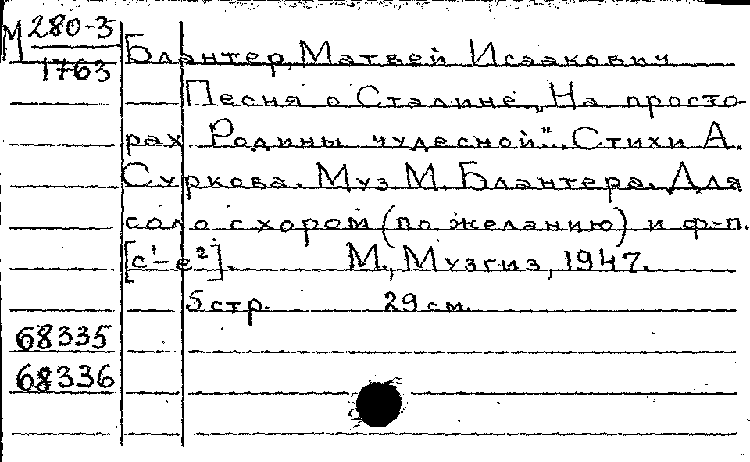 М 280-3
1763
Блантер, Матвей Исаакович
Песня о Сталине. „На просто-
рах Родины чудесной". Стихи А.
Суркова. Муз М. Блантера. Для
соло с хором (по желанию) и ф-п.
[c¹-e²]. М., Музгиз, 1947.
5 стр. 29 см.
68335
68336